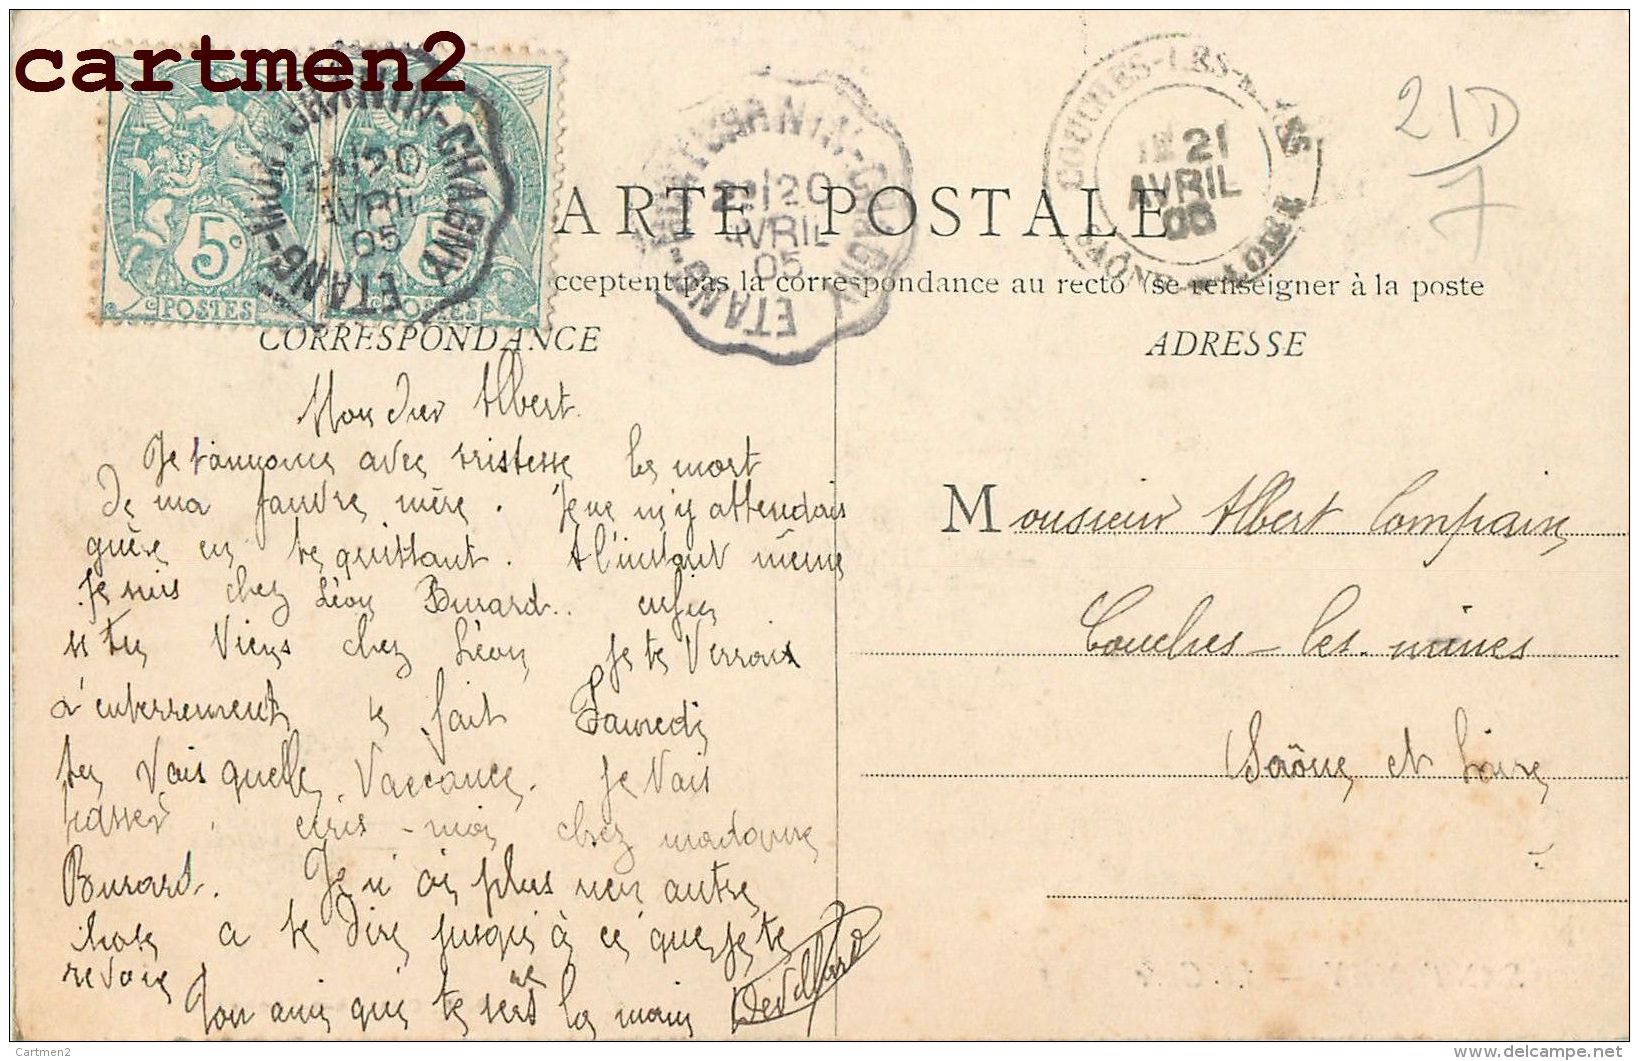 cartmen2
5c
POSTES
5c
POSTES
ETANG-MONTCHANIN-CHAGNY
20
AVRIL
05
ETANG-MONTCHANIN-CHAGNY
20
AVRIL
05
COUCHES-LES-MINES
21
AVRIL
SAÔNE
21D
7
ARTE POSTALE
cceptent pas la correspondance au recto (se renseigner à la poste
CORRESPONDANCE
ADRESSE
Mon cher Albert.
Je t'annonce avec tristesse la mort
de ma pauvre mère. Je ne m'y attendais
guère en te quittant. A l'instant même
Je suis chez Léon Burard.. enfin
si tu viens chez Léon je te verrais
L'enterrement se fait Samedi
tu vais quelle vaccance. Je vais
passer. écris-moi chez madame
Burard. Je n'ai plus rien autre
chose a te dire jusqu'à ce que je te
revoie
Ton ami qui te serre la main
Monsieur Albert Compain
Couches-les-mines
Saône et Loire
Cartmen2
www.delcampe.net